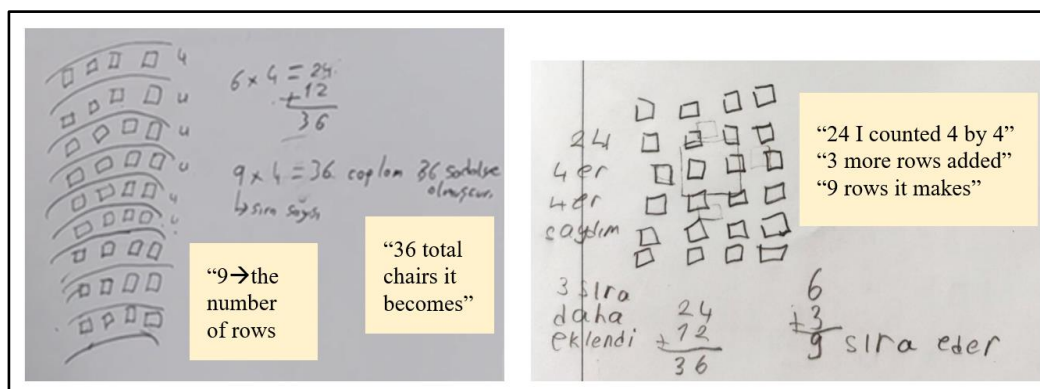 4
4
4
4
4
4
6 x 4 = 24
+ 12
36
9 x 4 = 36 toplam 36 sandalye
olmuştur.
↳ sıra sayısı
“9→the
number
of rows
“36 total
chairs it
becomes”
24
4 er
4 er
saydım
3 sıra
daha
eklendi
24
+ 12
36
6
+ 3
9 sıra eder
“24 I counted 4 by 4”
“3 more rows added”
“9 rows it makes”